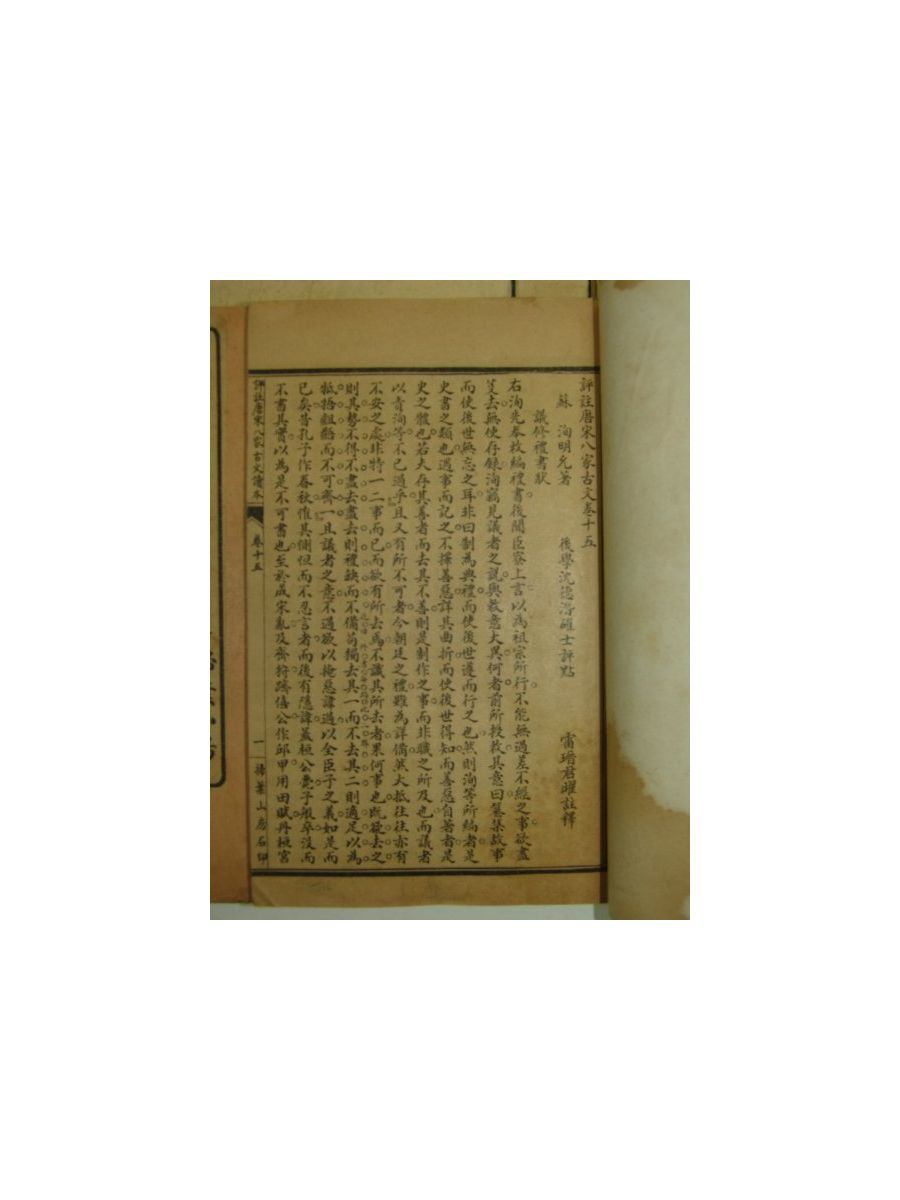 評註唐宋八家古文卷十五
蘇　洵明允著　後學沈德潛確士評點　雷瑨君曜註釋
議修禮書狀
右洵先奉敕編禮書後聞臣寮上言以為祖宗所行不能無過差不經之事欲盡
芟去無使存錄洵竊見議者之說與敕意大異何者前所授敕其意曰纂集故事
而使後世無忘之耳非曰制為典禮而使後世遵而行之也然則洵等所編者是
史書之類也遇事而記之不擇善惡詳其曲折而使後世得知而善惡自著者是
史之體也若夫存其善者而去其不善則是制作之事而非職之所及也而議者
以責洵等不已過乎且又有所不可者今朝廷之禮雖為詳備然大抵往往亦有
不安之處非特一二事而已而欲有所去焉不識其所去者果何事也既欲去之
則其勢不得不盡去盡去則禮缺而不備苟獨去其一而不去其二則適足以為
牴牾齟齬而不可齊一且議者之意不過欲以掩惡諱過以全臣子之義如是而
已矣昔孔子作春秋惟其惻怛而不忍言者而後有隱諱蓋桓公薨子般卒沒而
不書其實以為是不可書也至於成宋亂及齊狩躋僖公作邱甲用田賦丹桓宮
評註唐宋八家古文讀本　卷十五　一　掃葉山房石印